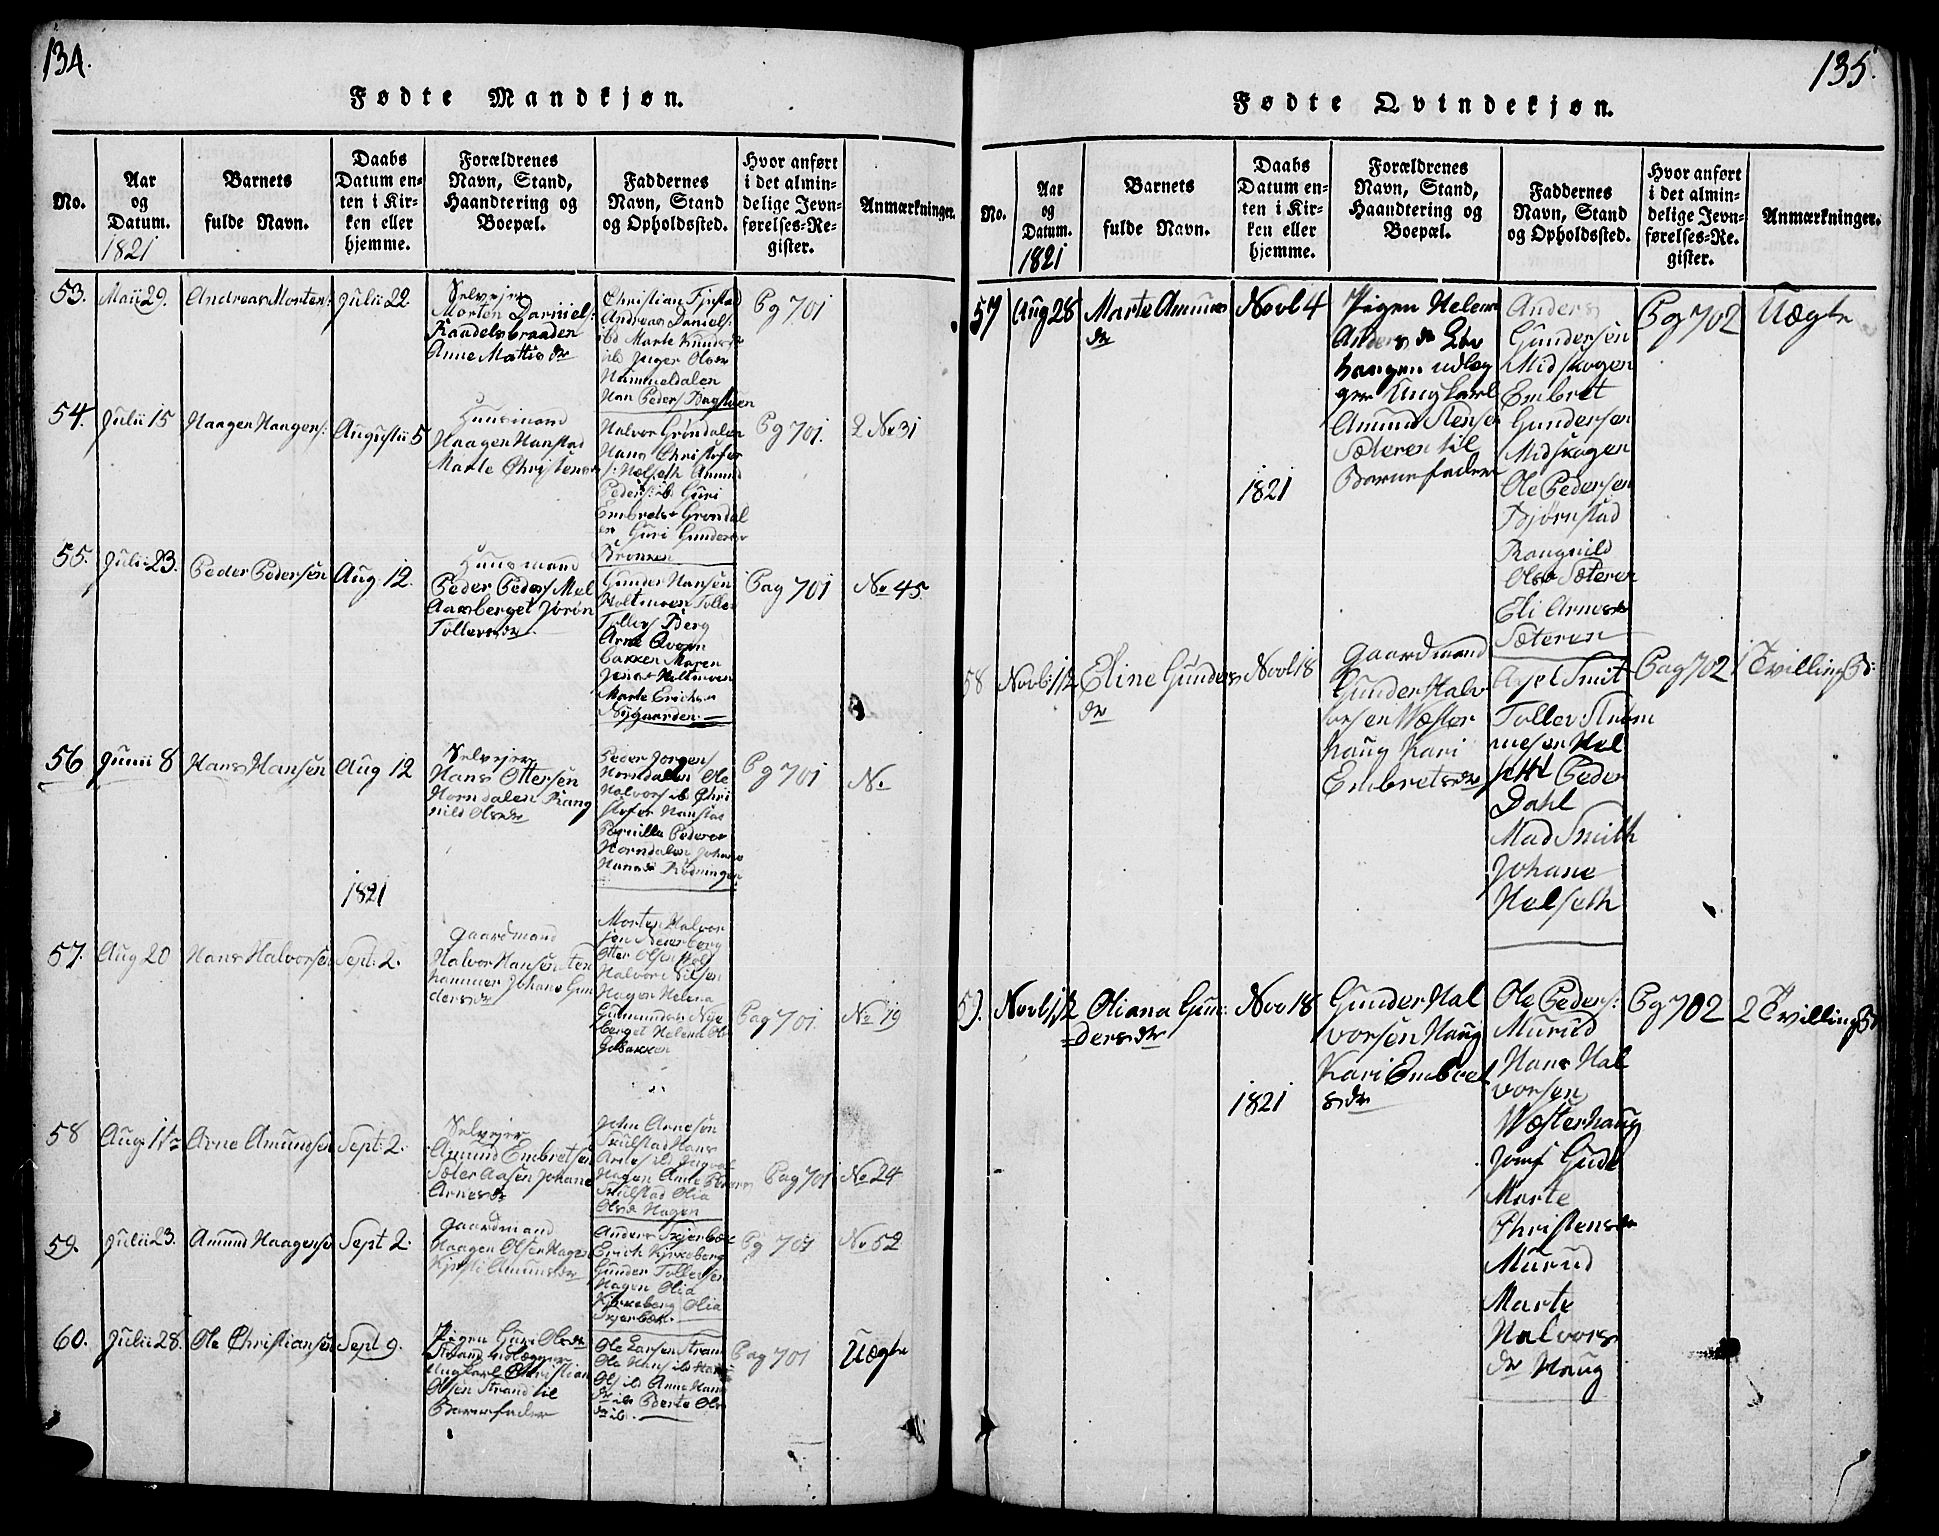 134.
Fødte Mandkjøn.
No.
Aar
og
Datum.
1821
Barnets
fulde Navn.
Daabs
Datum en-
ten i Kir-
ken eller
hjemme.
Forældrenes
Navn, Stand,
Haandtering og
Boepæl.
Faddernes
Navn, Stand
og Opholdssted.
Hvor anført
i det almin-
delige Jevn-
førelses-Re-
gister.
Anmærkninger.
53.
Maii 29.
Andreas Morten:
Julii 22
Selvejer
Morten Darniels:
Anne Mattis dr
Christian
Andreas Daniels:
ibd Marte Knuds
ibd Inger Olsdr
Hummeldalen
Han Peders
Pg 701
54.
Julii 15
Haagen Haagens:
Augustii 5
Huusmand
Haagen Hanstad
Marte Christens
Halvor Grøndalen
Hans Christofer
s: Helseth Amund
Peders: ib Guri
Embrets Grøndal
en Guri Gunders
Pg 701.
2 No 31
55.
Julii 23.
Peder Pedersen
Aug: 12.
Huusmand
Peder Peders Mel
Aasberget Jørøn
Tollersdr
Gunder Hansen
Holtmoen Toller
Tollers Berg
Arne Qværn
bakken Maren
Jens Holtmoen
Marte Erichs
Nÿgaarden
Pag 701
No 45
56
Junii 8
Hans Hansen
Aug 12
Selvejer
Hans Ottersen
Horndalen Rang
nild Olsdr
Peder Jorgens
Horndalen Ole
Halvors ib Chri
stofer Hanstad
Pernille Peders
Horndalen Johane
Hansdr Rødningen
Pg 701
No
1821
57.
Aug 20
Hans Halvorsen
Sept: 2.
Gaardmand
Halvor Hansen Sten
hammer Johane Gun
dersdr
Morten Halvor
sen
Otter Olsen
Halvor Nilsen
Hagen Helena
Gumundsdr Nye
berget Helena Ols
Pag 701.
No 79
58
Aug:
Arne Amundsen
Sept: 2.
Selvejer
Amund Embretsen
Sæter Aasen Johane
Arnesdr
John Arnesen
Skulstad Hans
Arnes ibd
Hagen Anne Peders
Skulstad Olia
Olsdr Hagen
Pag 701
No 24
59.
Julii 23.
Amund Haagensen
Sept 2.
Gaardmand
Haagen Olsen Hagen
Kjersti Amunsdr
Anders Skjerbæk
Erich Kirkeberg
Gunder Tollersen
Hagen Olia
Kirkeberg Olia
Skjerbæk
Pg 701
No 52
60.
Julii 28.
Ole Christiansen
Sept 9.
Pigen Guri Olsdr
Strand udlægger
Ungkarl Christian
Olsen Strand til
Barnefader
Ole Larsen Strand
Ole Hans ibd Hans
Ols ibd Anne Hans
dr ib Berte Ols
dr ib.
Pag 701
Uægte
135.
Fødte Qvindekjøn.
No.
Aar
og
Datum.
1821
Barnets
fulde Navn.
Daabs
Datum en-
ten i Kir-
ken eller
hjemme.
Forældrenes
Navn, Stand,
Haandtering og
Boepæl.
Faddernes
Navn, Stand
og Opholdssted.
Hvor anført
i det almin-
delige Jevn-
førelses-Re-
gister.
Anmærkninger.
57
Aug 28
Marte Amuns
dr
Novb 4
1821
Pigen Helene
Anders dr
haugen udlæg
ger Ungkarl
Amund Stensen
Sæteren til
Barnefader
Anders
Gundersen
Midskogen
Embret
Gundersen
Midskogen
Ole Pedersen
Bjørnstad
Rangnild
Olsdr Sæteren
Eli Arnesdr
Sæteren
Pg 702
Uægte
58
Novb: 12
Eline Gunders
dr
Novb 18
Gaardmand
Gunder Halv
orsen Væster
haug Kari
Embretsdr
Axel Smit
Toller Strøm
mesøn Hel
seth Peder
Dahl
Mad Smith
Johane
Helseth
Pag 702
1 Tvilling B:
59.
Novb 12
Oliana Gun:
dersdr
Nov 18
1821
Gunder Hal
vorsen Haug
Kari Embret
sdr
Ole Peders:
Murud
Hans Hal
vorsen
Væsterhaug
Josef Gude
Marte
Christensdr
Murud
Marte
Halvors
dr Haug
Pg 702
2 Tvilling B: